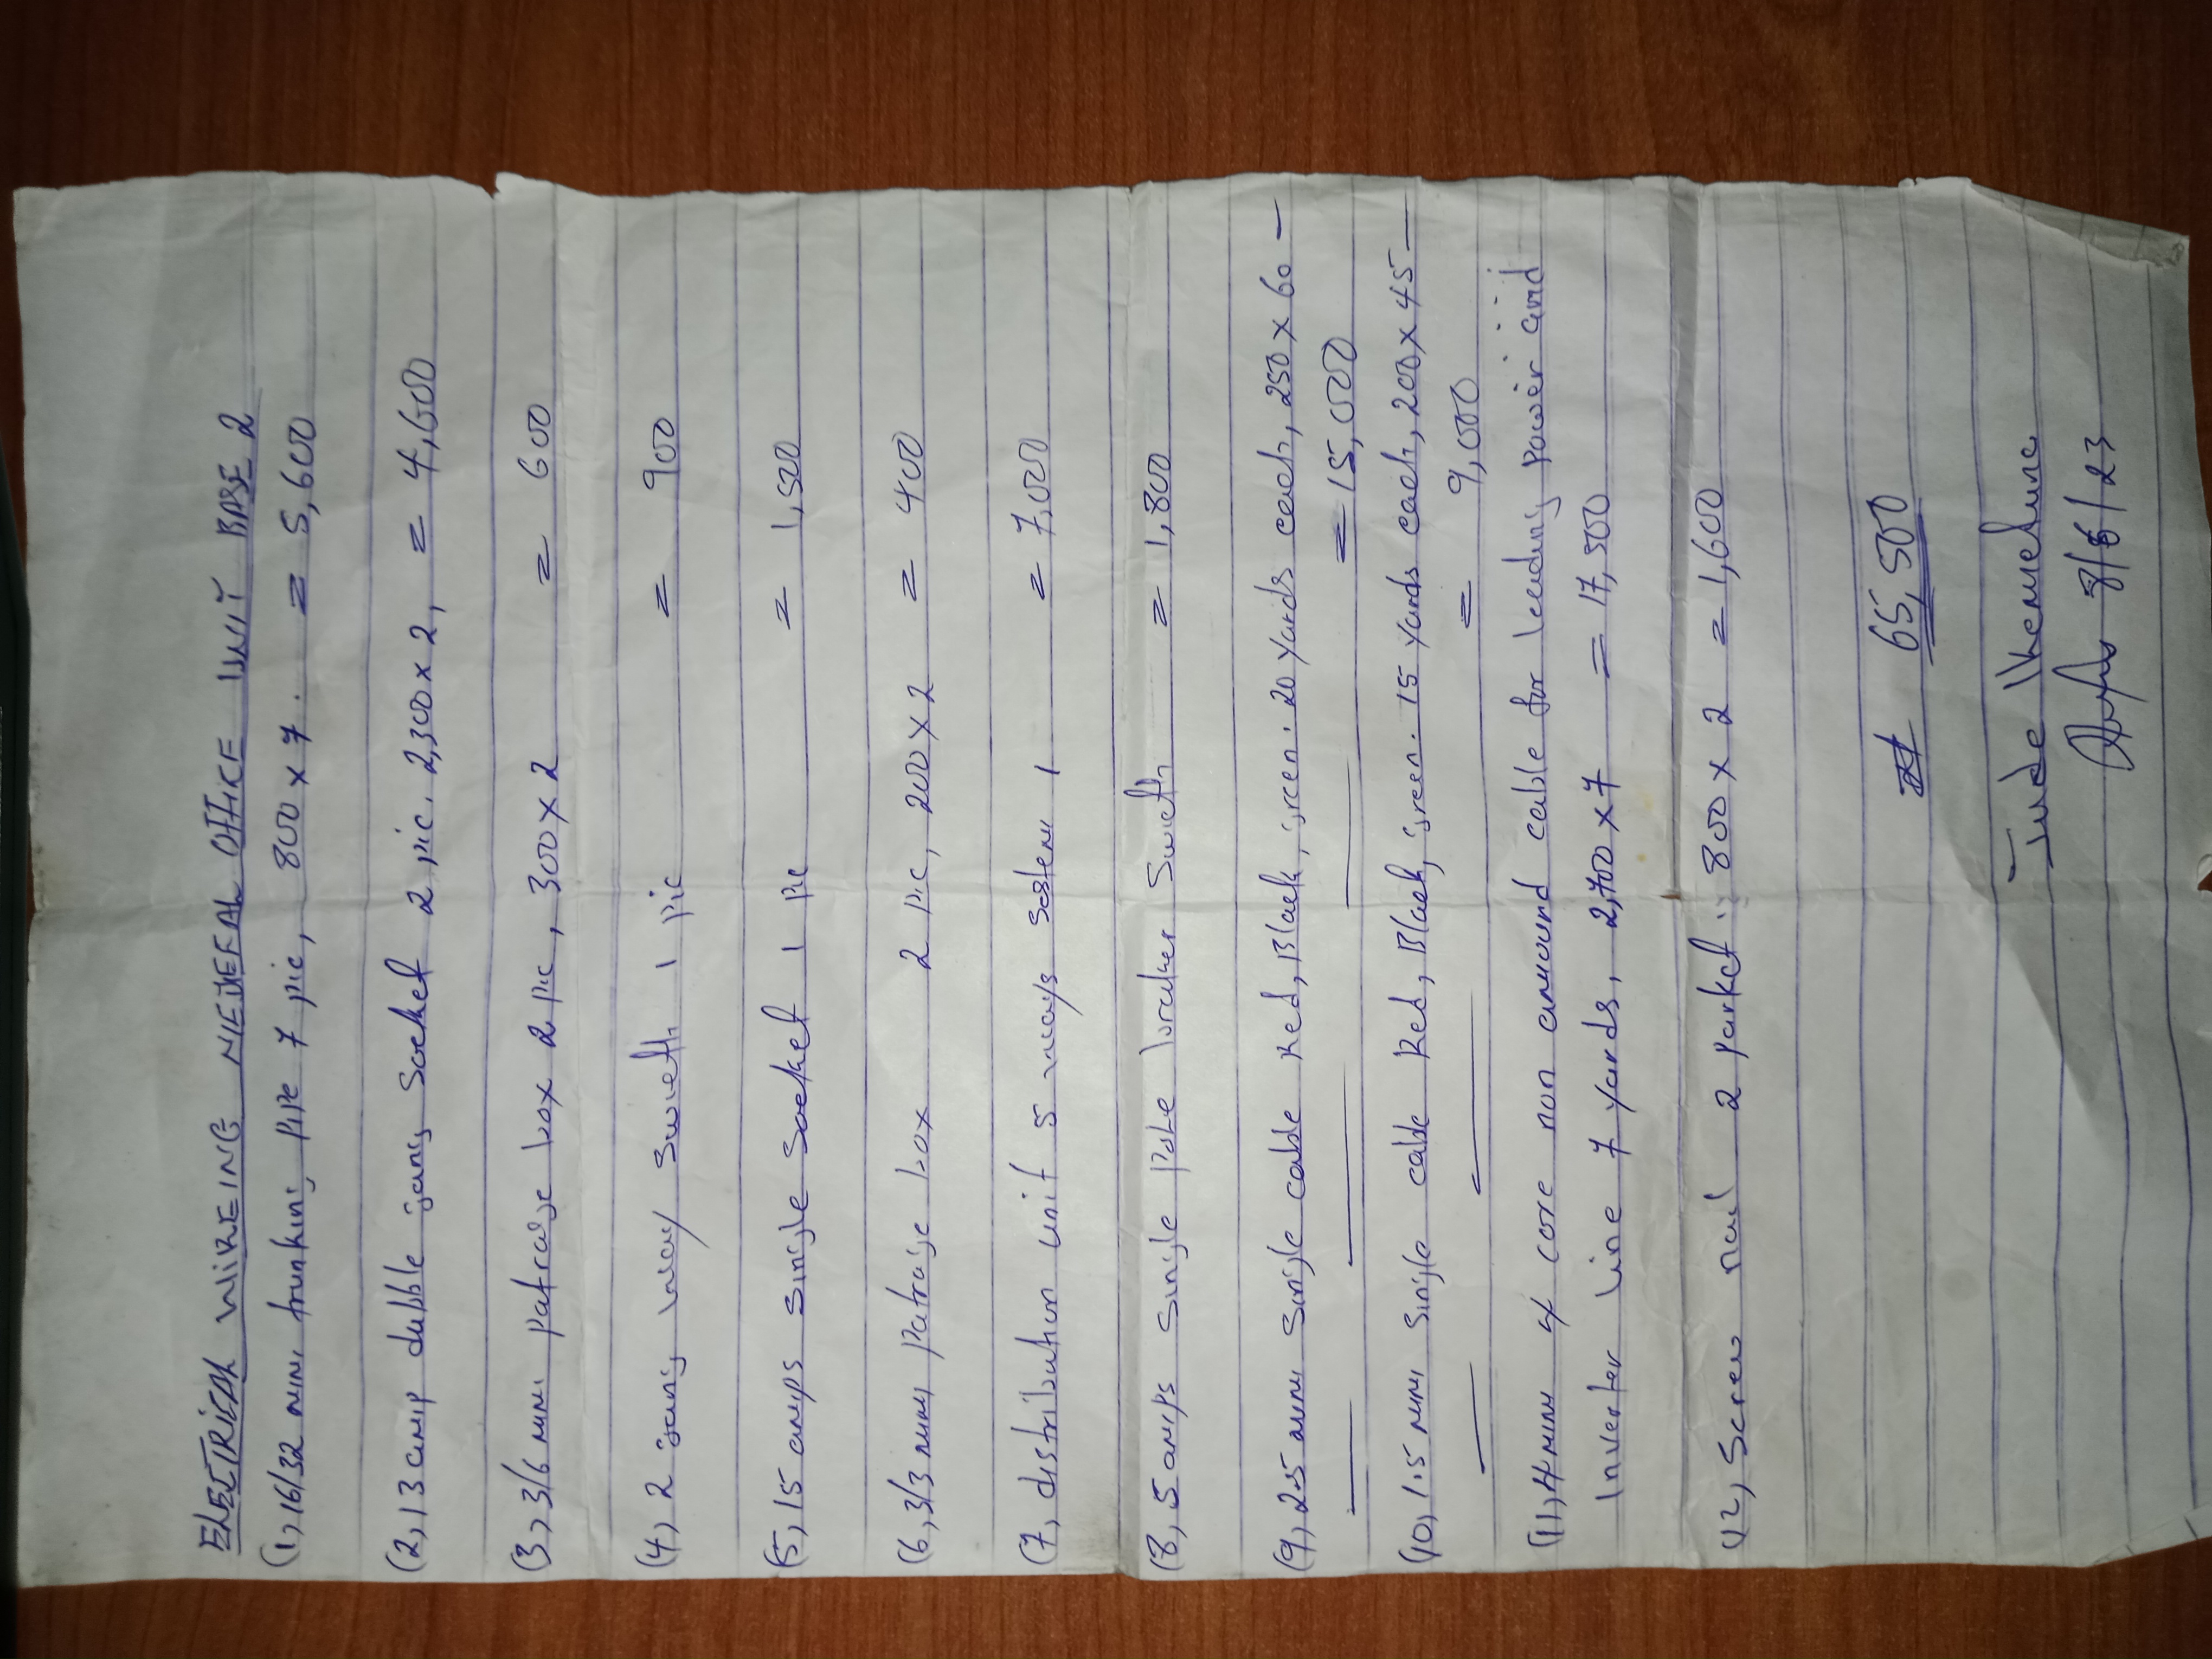 ELECTRICAL WIREING NIEDERAL OFFICE UNIT BASE 2
(1, 16/32 mm trunking pipe 7 pic, 800 x 7. = 5,600
(2, 13 amp dubble gang Socket 2 pic. 2,300 x 2, = 4,600
(3, 3/6 mm patrage box 2 pic, 300 x 2 = 600
(4, 2 gang way Swicth 1 pic = 900
(5, 15 amps single Socket 1 pic = 1,500
(6, 3/3 mm patrage box 2 pic, 200 x 2 = 400
(7, distribution unit 5 ways sestem 1 = 7,000
(8, 5 amps Single pole braker Swicth = 1,800
(9, 2.5 mm Single cable Red, Black, green. 20 yards each, 250 x 60 —
= 15,000
(10, 1.5 mm Single cable Red, Black, green. 15 yards each, 200 x 45 —
= 9,000
(11, 4mm 4 core non amound cable for leeding power and
inverter line 7 yards, 2,700 x 7 = 17,500
(12, Screw nail 2 parket. 800 x 2 = 1,600
# 65,500
Jude Ikemedune
8/6/23